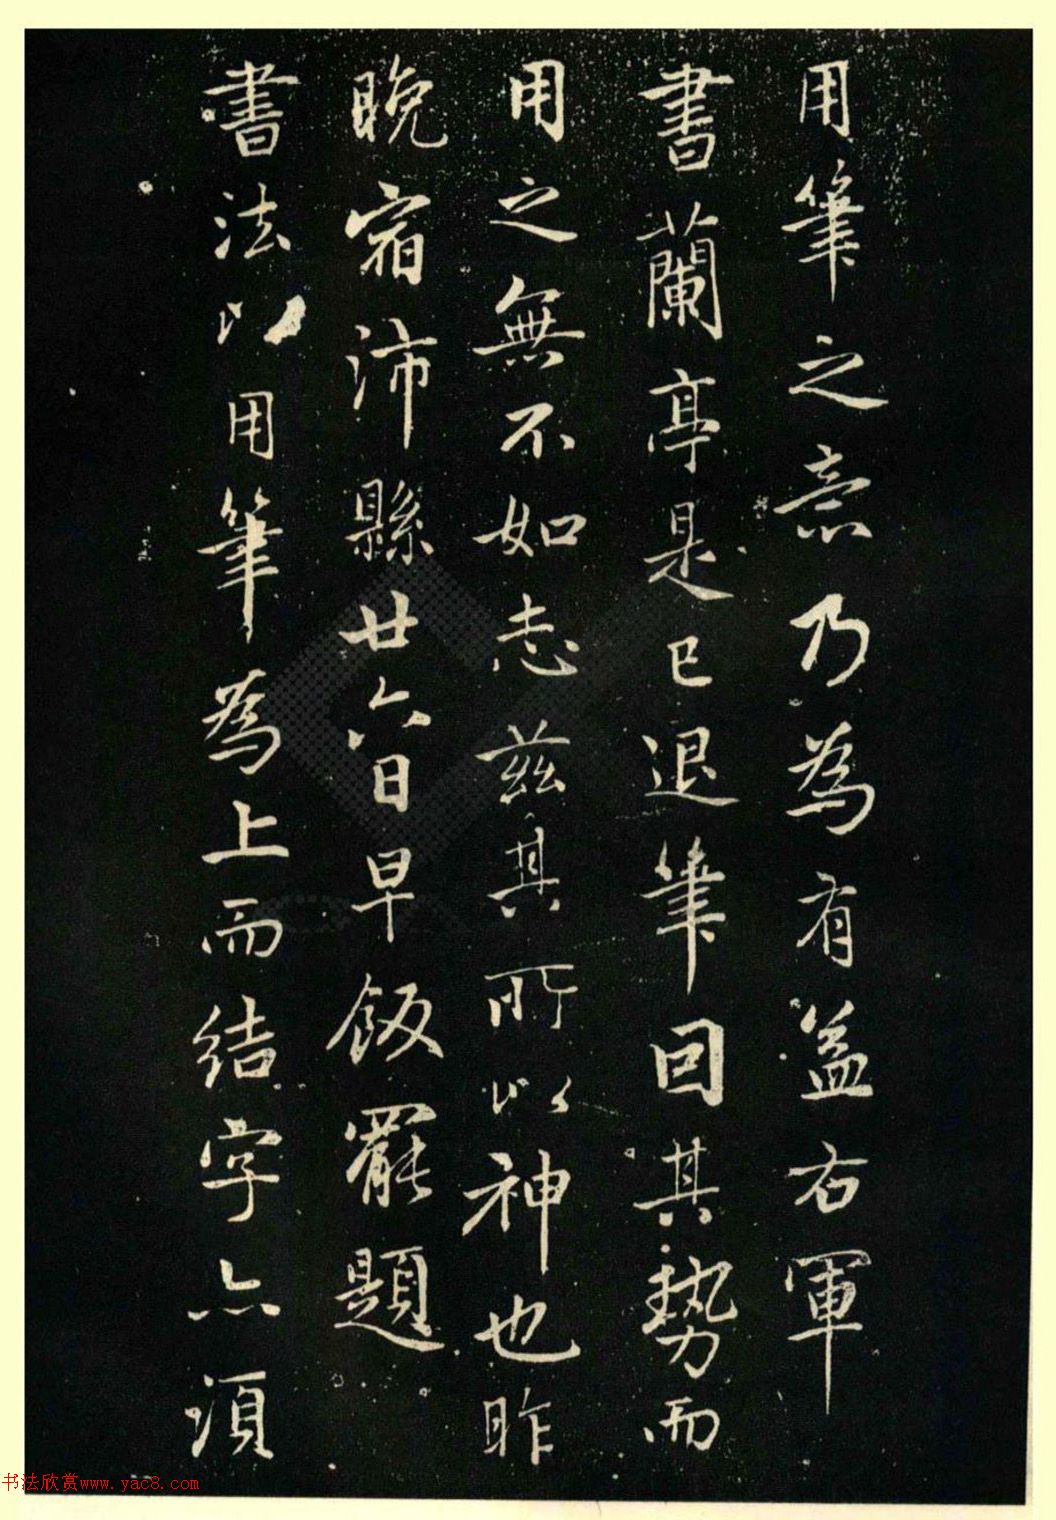 用筆之意乃為有益右軍
書蘭亭是已退筆因其勢而
用之無不如志茲其所以神也昨
晚宿沛縣廿六日早飯罷題
書法以用筆為上而結字亦須
书法欣赏www.yac8.com